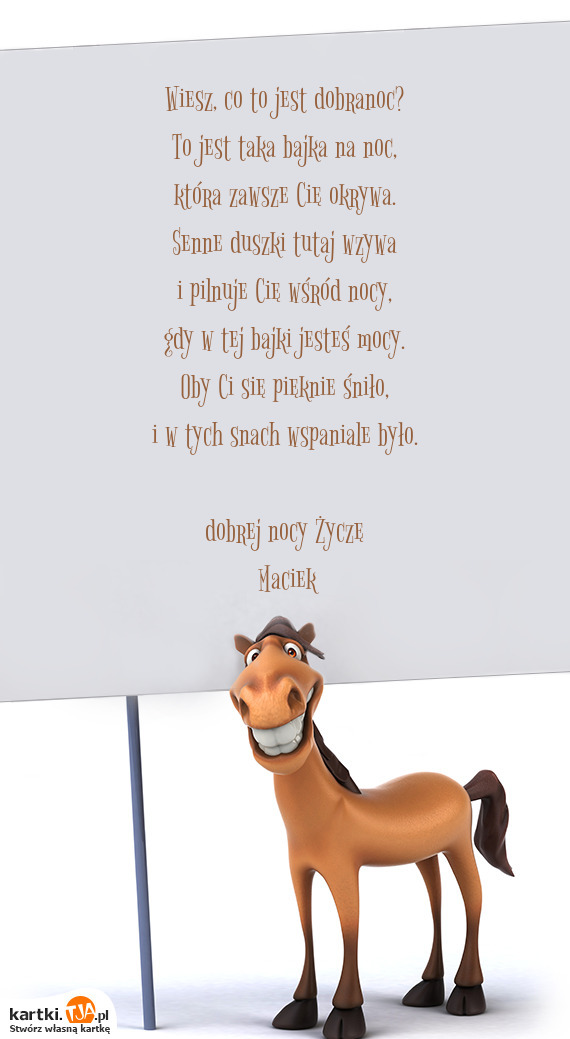 Wiesz, co to jest dobranoc?
To jest taka bajka na noc,
która zawsze Cię okrywa.
Senne duszki tutaj wzywa
i pilnuje Cię wśród nocy,
gdy w tej bajki jesteś mocy.
Oby Ci się pięknie śniło,
i w tych snach wspaniale było.
dobrej nocy Życzę
Maciek
kartki.TJA.pl
Stwórz własną kartkę